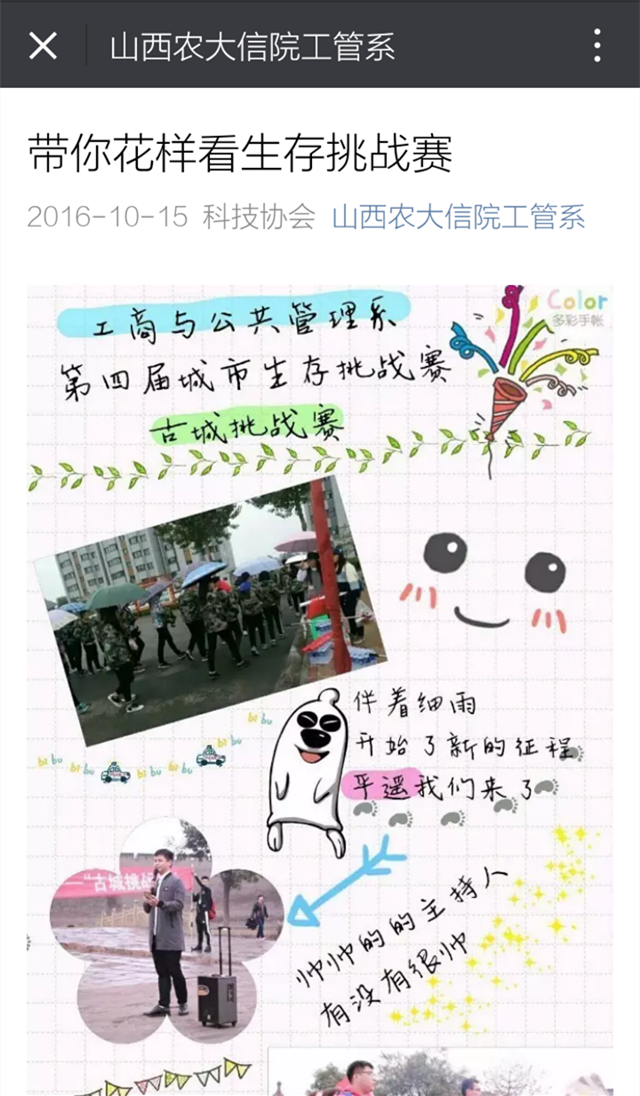 山西农大信院工管系
带你花样看生存挑战赛
2016-10-15 科技协会 山西农大信院工管系
Color
多彩手帐
工商与公共管理系
第四届城市生存挑战赛
古城挑战赛
伴着细雨
开始了新的征程
平遥我们来了
bi bu
bi bu
bi bu
bi bu
bi bu
—“古城挑战
帅帅的的主持人
有没有很帅